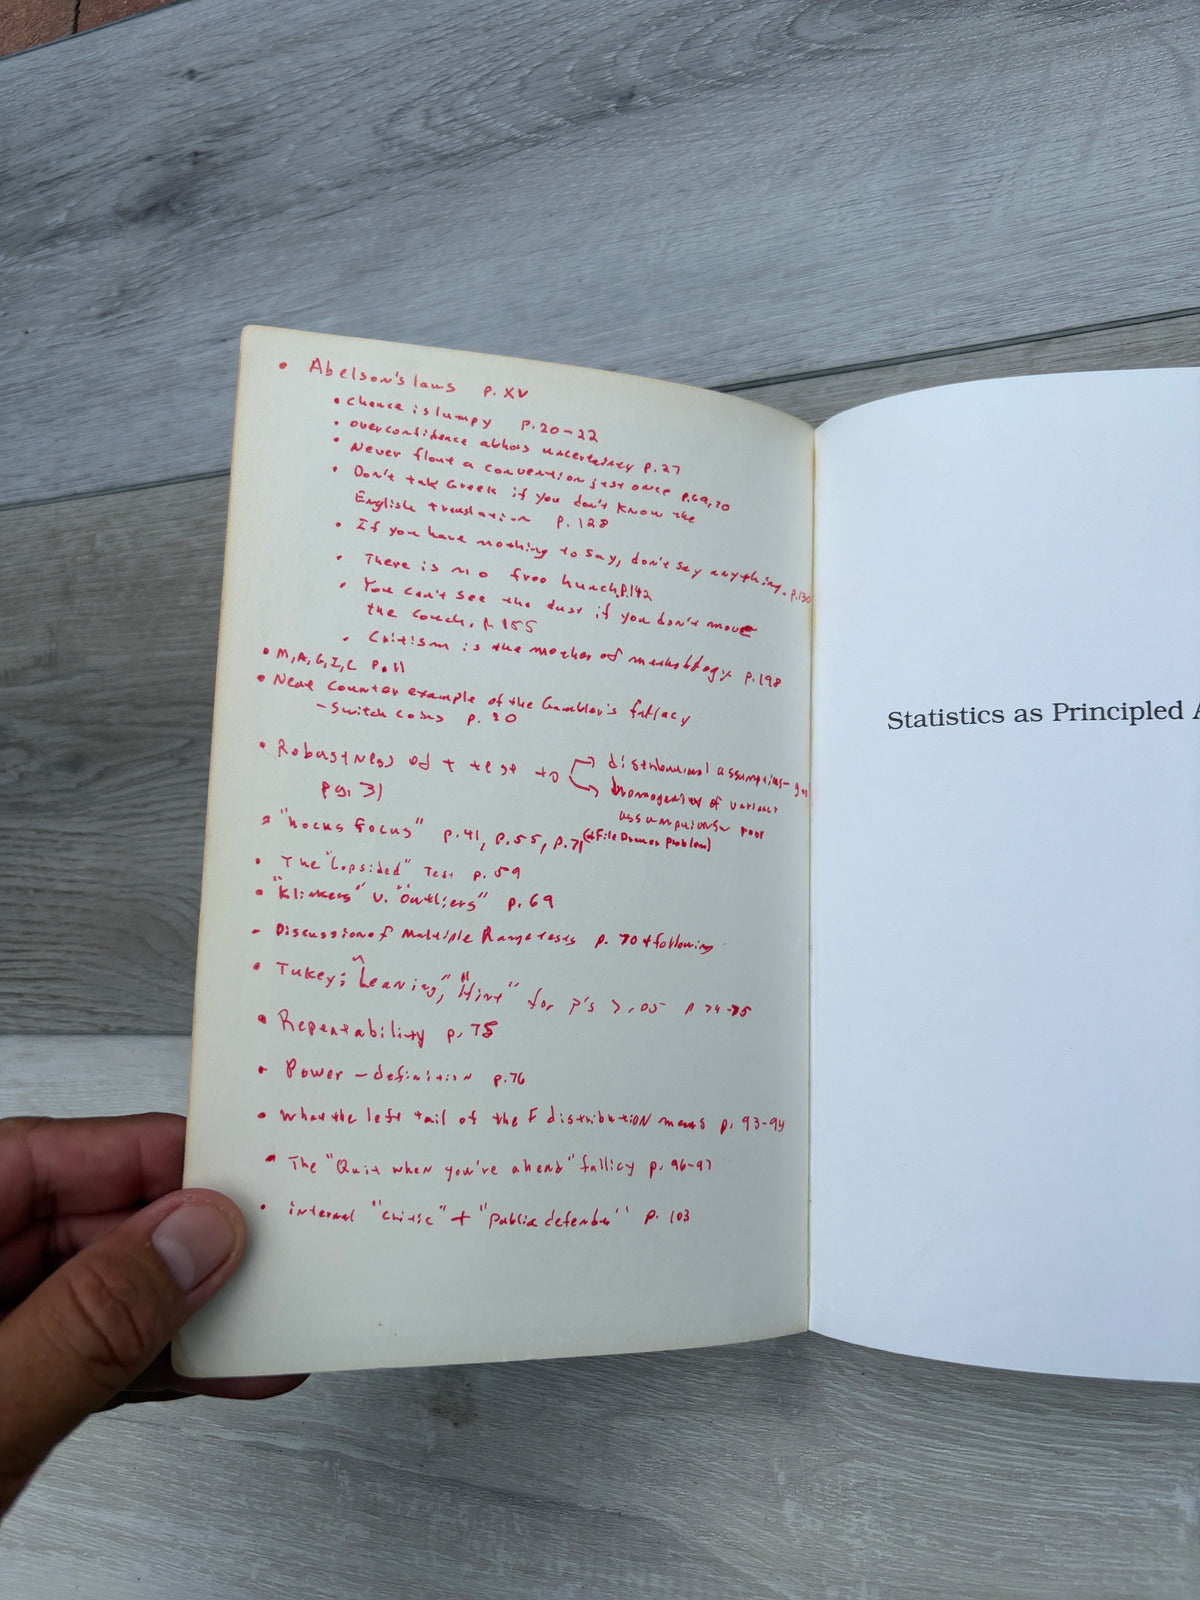 • Abelson's laws p. XV
• Chance is lumpy p. 20-22
• overconfidence abhors uncertainty p. 27
• Never flout a convention just once p. 69, 70
• Don't talk Greek if you don't know the
English translation p. 128
• If you have nothing to say, don't say anything. p. 130
• There is no free hunch p. 142
• You can't see the dust if you don't move
the couch, p 155
• Critism is the mother of methodology p. 198
• M, A, G, I, C p. 11
• Neat counter example of the Gambler's fallacy
- Switch coins p. 20
• Robustness of t test to → distributional assumptions-
→ homogeneity of variance
pg. 31
assumptions poor
• "hocus focus" p. 41, p. 55, p. 71 (+File Drawer Problem)
• The "Lopsided" Test p. 59
• "Klinkers" v. "Outliers" p. 69
- Discussion of Multiple Range tests p. 70 + following
• Tukey; "Leaning," "Hint" for p's > .05 p 74-75
• Repeatability p. 75
• Power - definition p. 76
• What the left tail of the F distribution means p. 93-94
• The "Quit when you're ahead" fallicy p. 96-97
• internal "critic" + "public defender" p. 103
Statistics as Principled